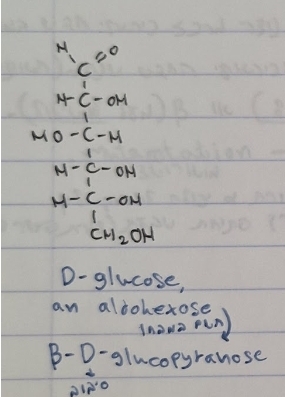 H
C=O
H-C-OH
HO-C-H
H-C-OH
H-C-OH
CH₂OH
D-glucose,
an aldohexose
β-D-glucopyranose